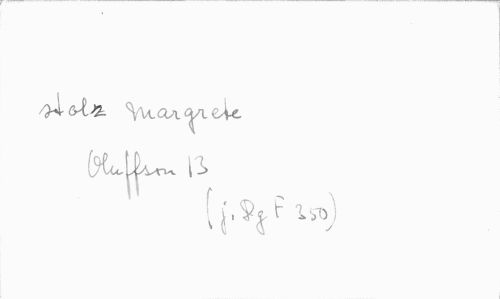 stolz margrete
Oluffson 13
(j. Rg F 350)